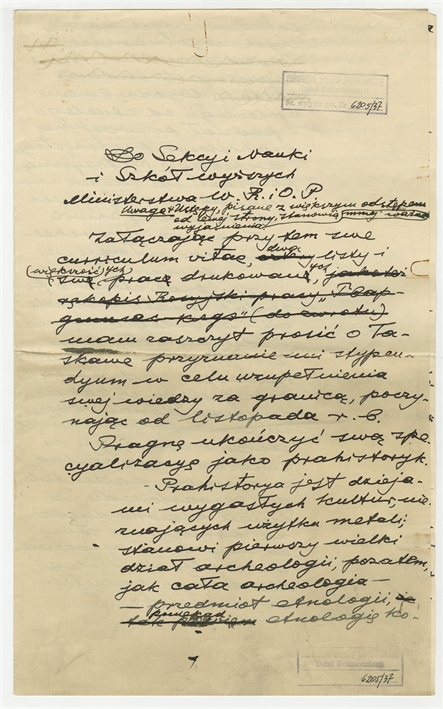 6205/37
Do Sekcyi Nauki
i Szkół Wyższych
Ministerstwa W. R. i O. P
Uwaga: Ustępy, pisane z większym odstępem
od lewej strony, stanowią mniej ważne
wyjaśnienia
Załączając przy tem swe
curriculum vitae, dwa listy i
(większość) swych prac drukowanych, jakoteż
rękopis Rosyjski pracy
(do zwrotu)
mam zaszczyt prosić o Ła-
skawe przyznanie mi stypen-
dyum w celu uzupełnienia
swej wiedzy za granicą, poczy-
nając od listopada r. b.
Pragnę ukończyć swą spe-
cyalizacyę jako prahistoryk.
Prahistorya jest dzieja-
mi wygasłych kultur, nie
znających użytku metali;
stanowi pierwszy wielki
dział archeologii, pozatem,
jak cała archeologia —
— przedmiot etnologii,
ponieważ etnologię ko-
6205/37